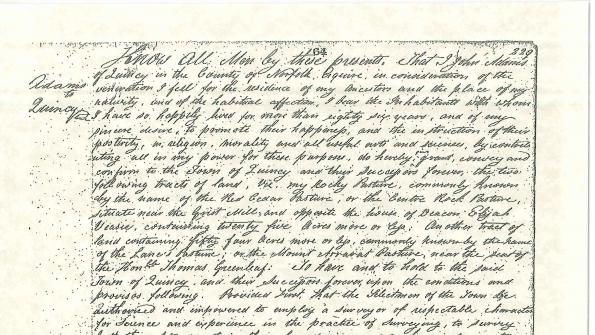 64
229
Adams
to
Quincy
Know All Men by these presents, That I John Adams
of Quincy in the County of Norfolk Esquire, in consideration of the
veneration I feel for the residence of my Ancestors and the place of my
nativity, and of the habitual affection, I bear the Inhabitants with whom
I have so, happily lived for more than eighty six years, and of my
sincere desire, to promote their happiness, and the instruction of their
posterity, in religion, morality and all useful arts and sciences, by contrib
uting all in my power for these purposes, do hereby grant, convey and
confirm to the Town of Quincy and their successors forever, the two
following tracts of land, viz. my Rocky Pasture, commonly known
by the name of the Red Cedar Pasture, or the Centre Rock Pasture,
situate near the Grist Mill, and opposite the house of Deacon Elijah
Veasie, containing twenty five Acres more or less; Another tract of
land containing fifty four Acres more or less, commonly known by the name
of the Lane's Pasture, or the Mount Ararat Pasture, near the seat of
the Honble Thomas Greenleaf: To have and to hold to the said
Town of Quincy, and their successors forever, upon the conditions and
provisos following. Provided First, that the Selectmen of the Town be
authorized and impowered to employ a surveyor of respectable character
for science and experience in the practice of surveying, to survey